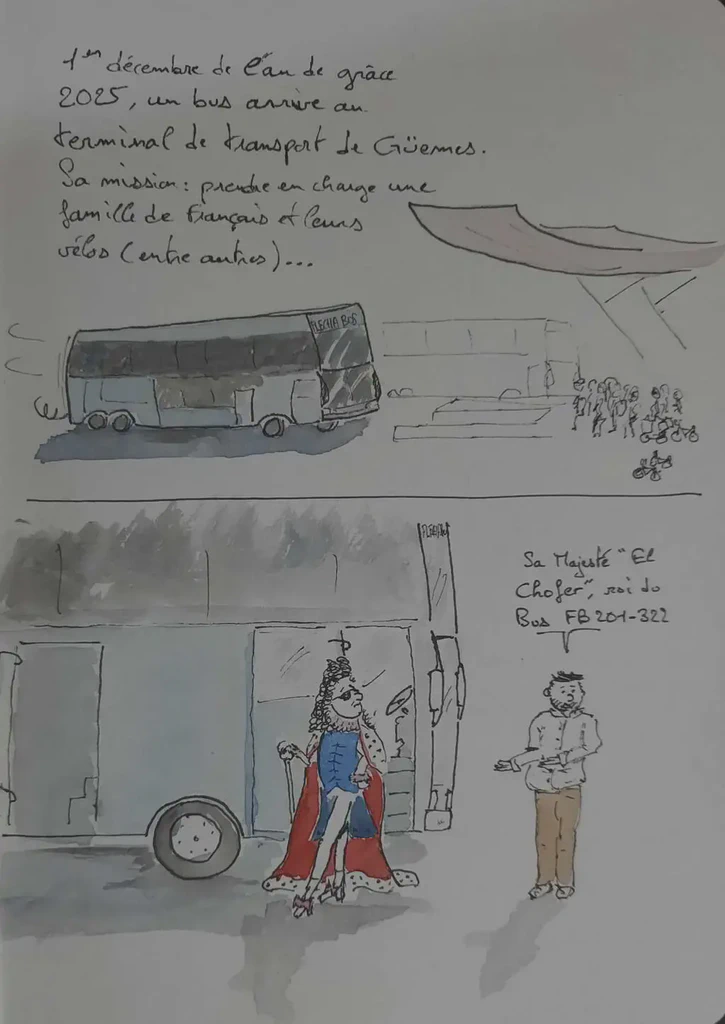 1er décembre de l'an de grâce
2025, un bus arrive au
terminal de transport de Güemes.
Sa mission : prendre en charge une
famille de Français et leurs
vélos (entre autres)...
FLECHA BUS
FLECHA BUS
Sa Majesté "El
Chofer", roi du
Bus FB 201-322